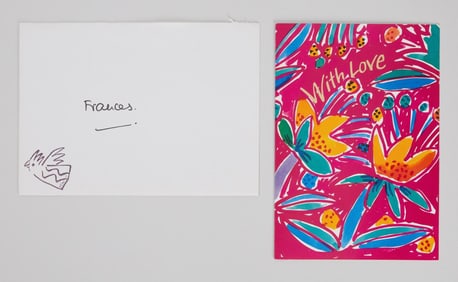 Frances.
With Love